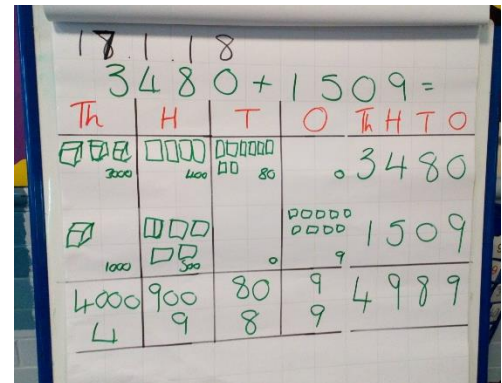 18.1.18
3480+1509=
Th H T O Th H T O
3000 400 80 0 3480
1000 500 0 9 1509
4000 900 80 9 4989
4 9 8 9